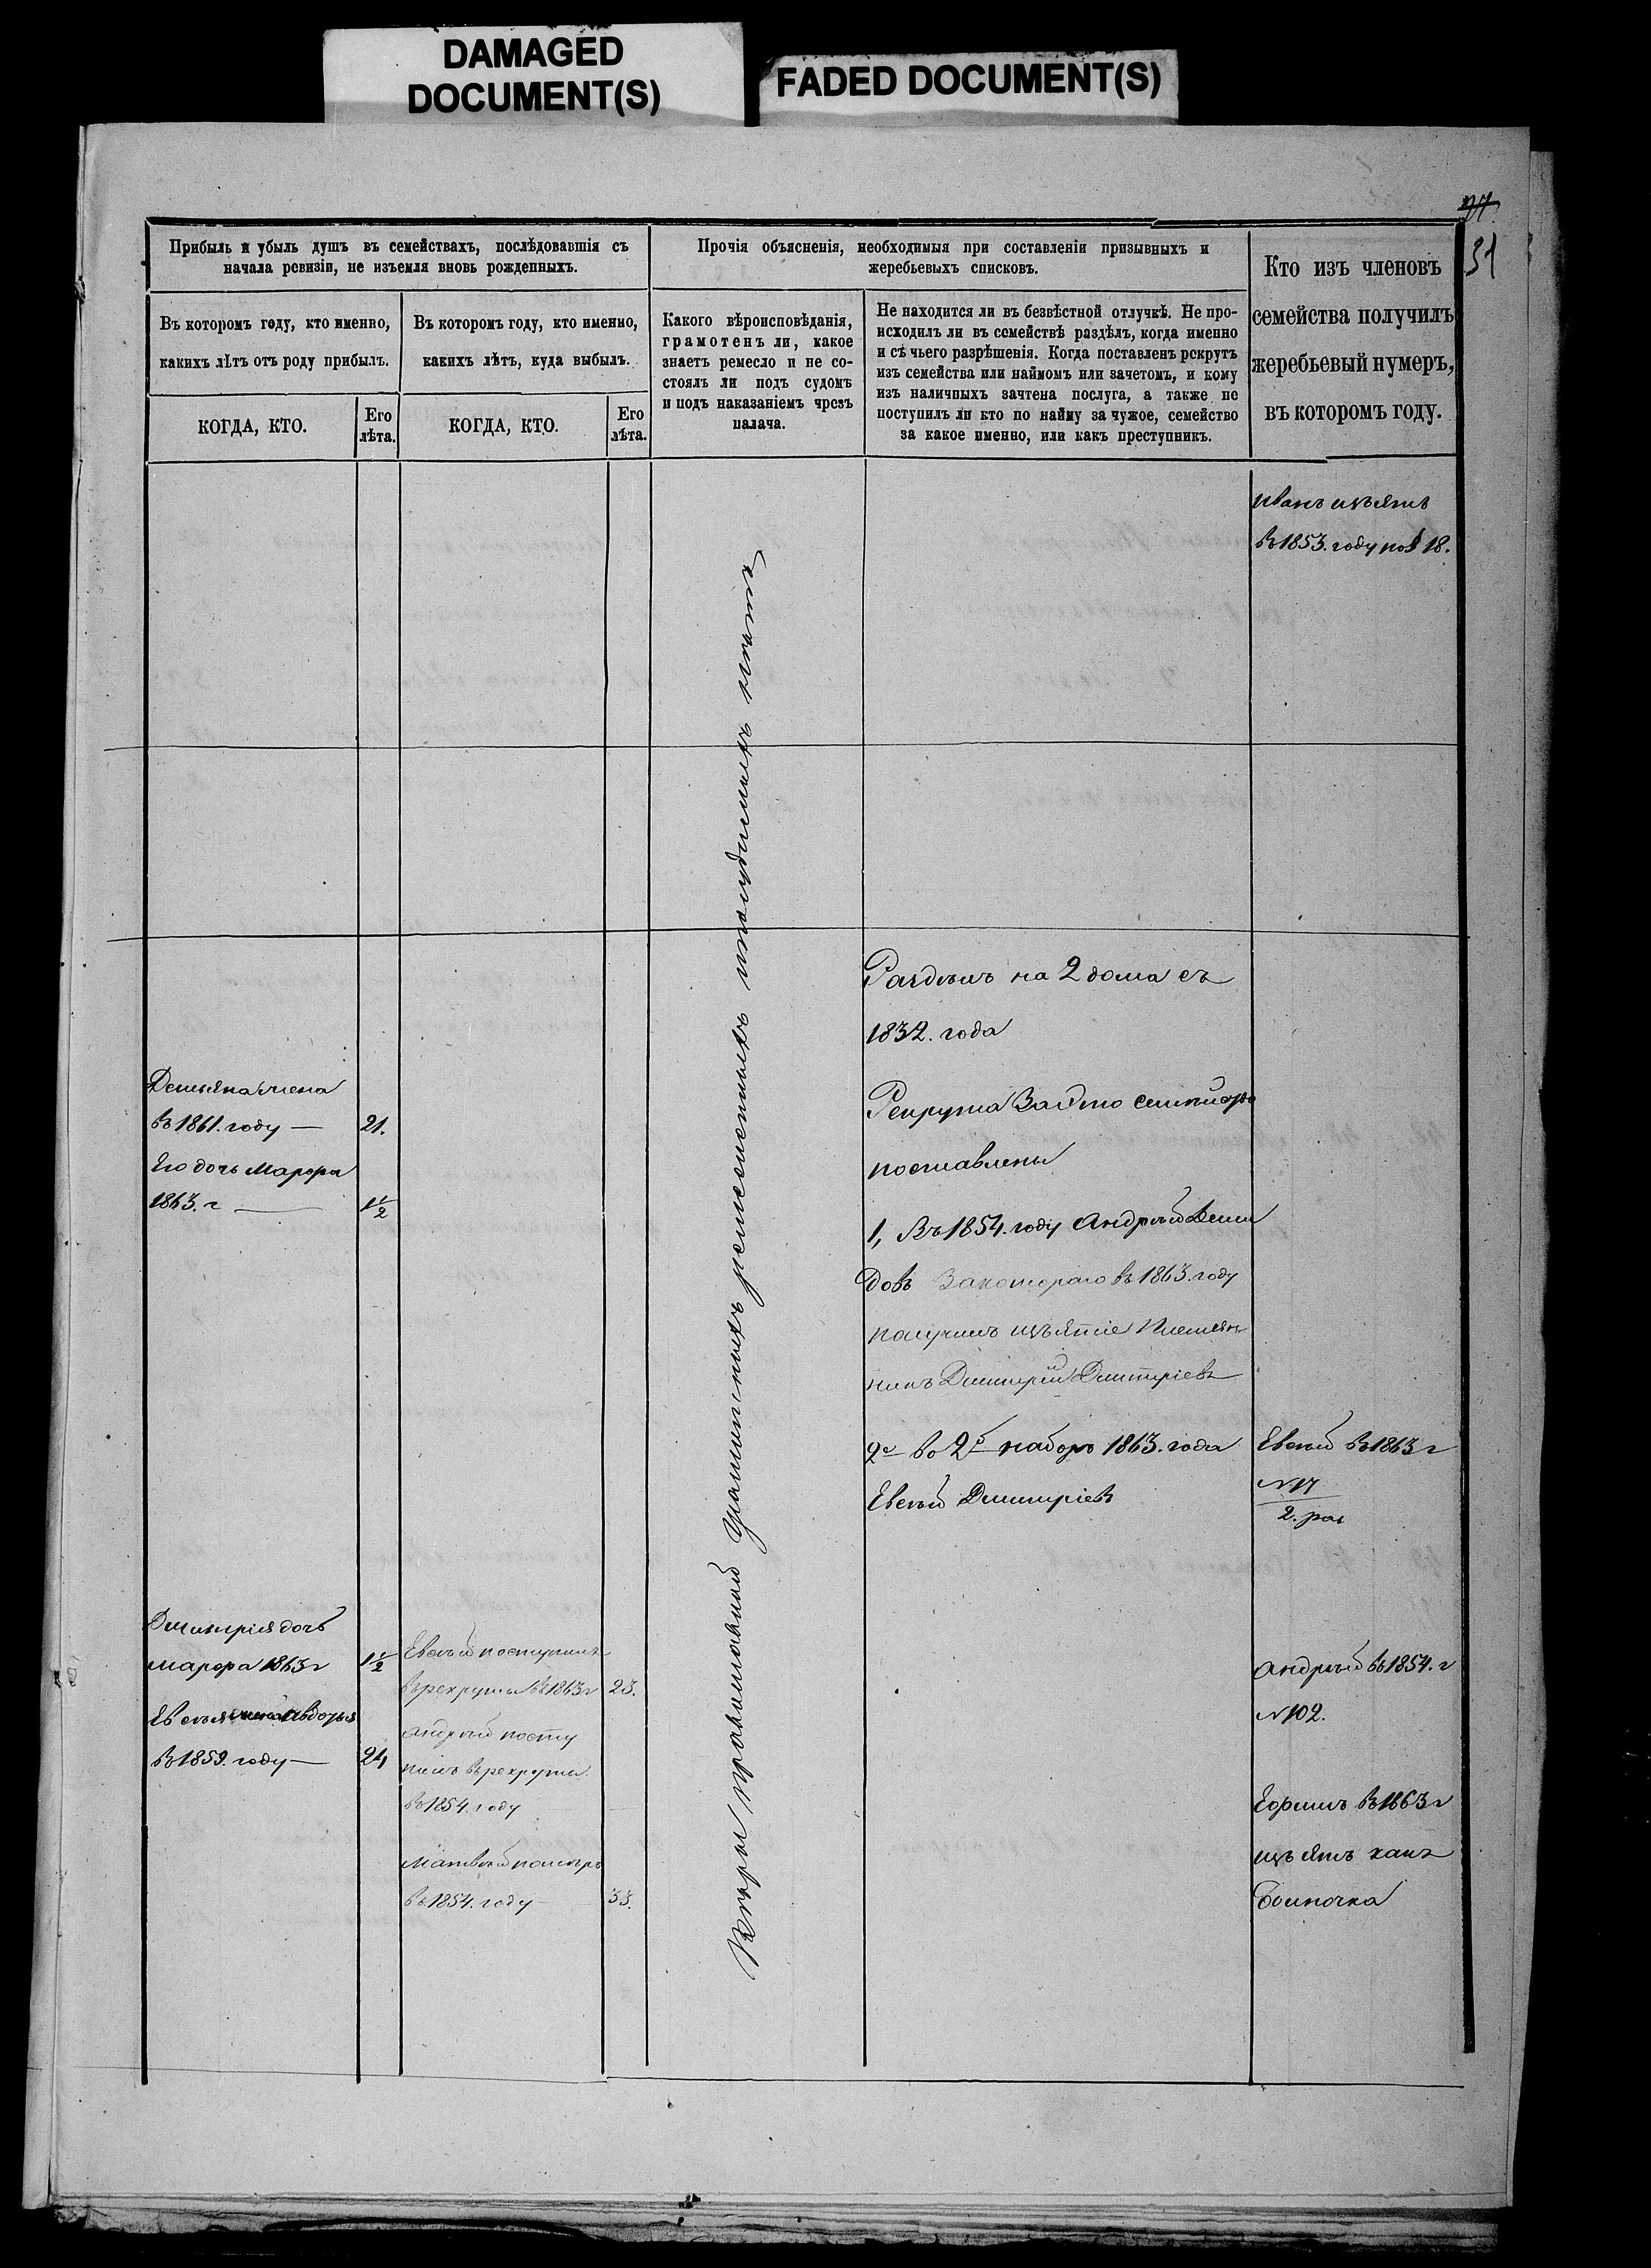 DAMAGED
DOCUMENT(S)
FADED DOCUMENT(S)
31
Прибыль и убыль душъ въ семействахъ, послѣдовавшія съ
начала ревизіи, не изъемля вновь рожденныхъ.
Въ которомъ году, кто именно,
какихъ лѣтъ отъ роду прибылъ.
КОГДА, КТО.
Его
лѣта.
Въ которомъ году, кто именно,
какихъ лѣтъ, куда выбылъ.
КОГДА, КТО.
Его
лѣта.
Прочія объясненія, необходимыя при составленіи призывныхъ и
жеребьевыхъ списковъ.
Какого вѣроисповѣданія,
грамотенъ ли, какое
знаетъ ремесло и не со-
стоялъ ли подъ судомъ
и подъ наказаніемъ чрезъ
палача.
Не находится ли въ безвѣстной отлучкѣ. Не про-
исходилъ ли въ семействѣ раздѣлъ, когда именно
и съ чьего разрѣшенія. Когда поставленъ рекрутъ
изъ семейства или наймомъ или зачетомъ, и кому
изъ наличныхъ зачтена послуга, а также не
поступилъ ли кто по найму за чужое, семейство
за какое именно, или какъ преступникъ.
Кто изъ членовъ
семейства получилъ
жеребьевый нумеръ,
въ которомъ году.
Иванъ изъятъ
въ 1853. году по § 18.
Вѣры православной Грамотныхъ ремесленныхъ и подсудимыхъ нѣтъ
Раздѣлъ на 2 дома съ
1832. года
Демьяна жена
въ 1861. году — 21.
Его дочь Марфа
1863. г — 1 1/2
Рекрута За это семейство
поставлены
1, Въ 1854. году Андрей Деми
довъ За котораго въ 1863. году
получилъ изъятіе Племян
никъ Дмитрій Дмитріевъ
2е во 2й наборъ 1863. года
Евсѣй Дмитріевъ
Евсѣй въ 1863 г
2. раз
Дмитрія дочь
Марфа 1863 г 1 1/2
Евсѣя жена Авдотья
въ 1859. году — 24
Евсѣй поступилъ
въ рекруты въ 1863 г 23.
Андрей посту
пилъ въ рекруты
въ 1854. году
Матвѣй померъ
въ 1854. году 33.
Андрей въ 1854. г
№ 102.
Ефимъ въ 1863 г
изъятъ какъ
одиночка